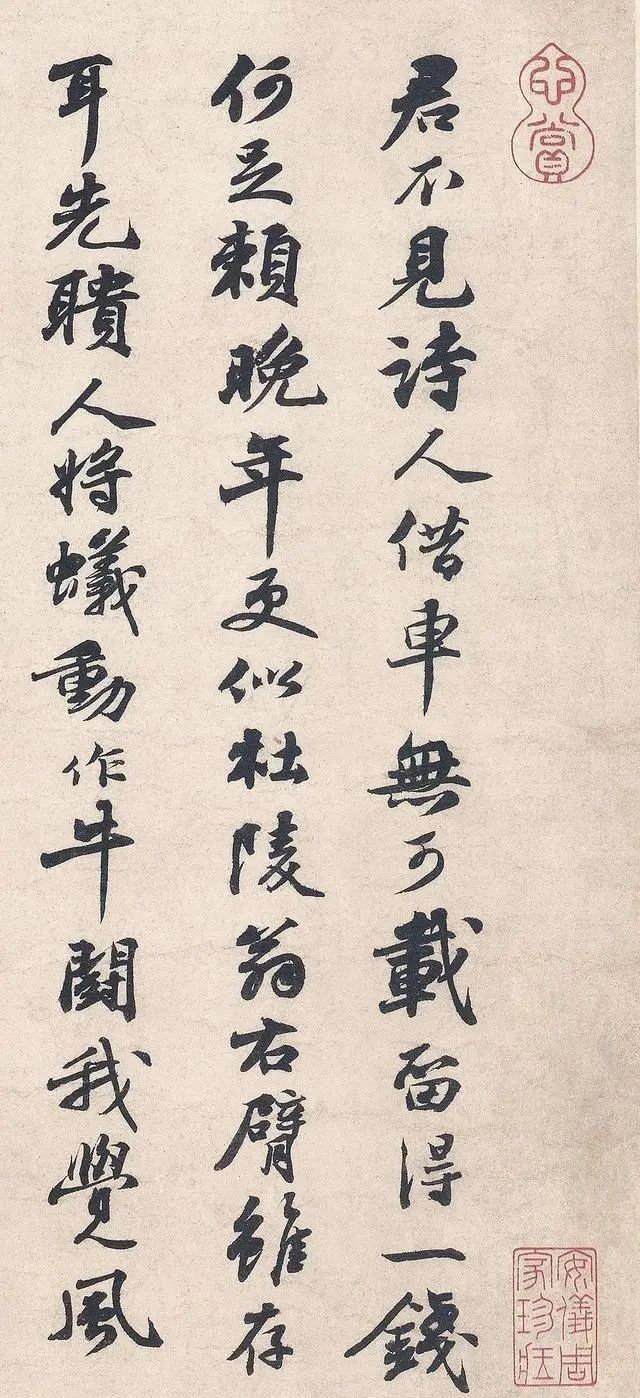 心賞
君不見詩人借車無可載留得一錢
何足賴晚年更似杜陵翁右臂雖存
耳先聵人將蟻動作牛鬭我覺風
安儀周家珍藏